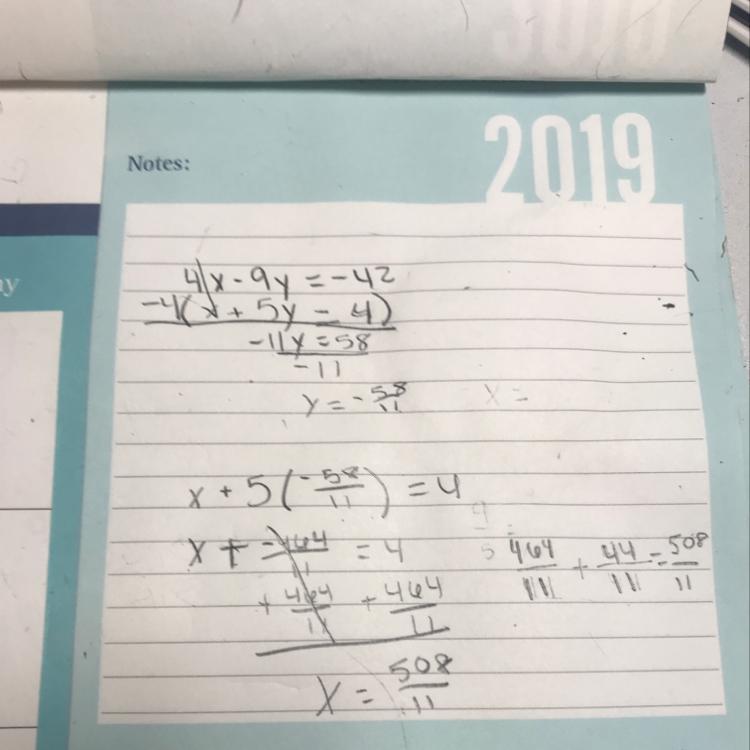 2019
Notes:
4x - 9y = -42
-4(x + 5y = 4)
-11y = 58
-11
y = -58/11
x =
x + 5(-58/11) = 4
x + -464/11 = 4
464/11 + 44/11 = 508/11
+ 464/11 + 464/11
x = 508/11